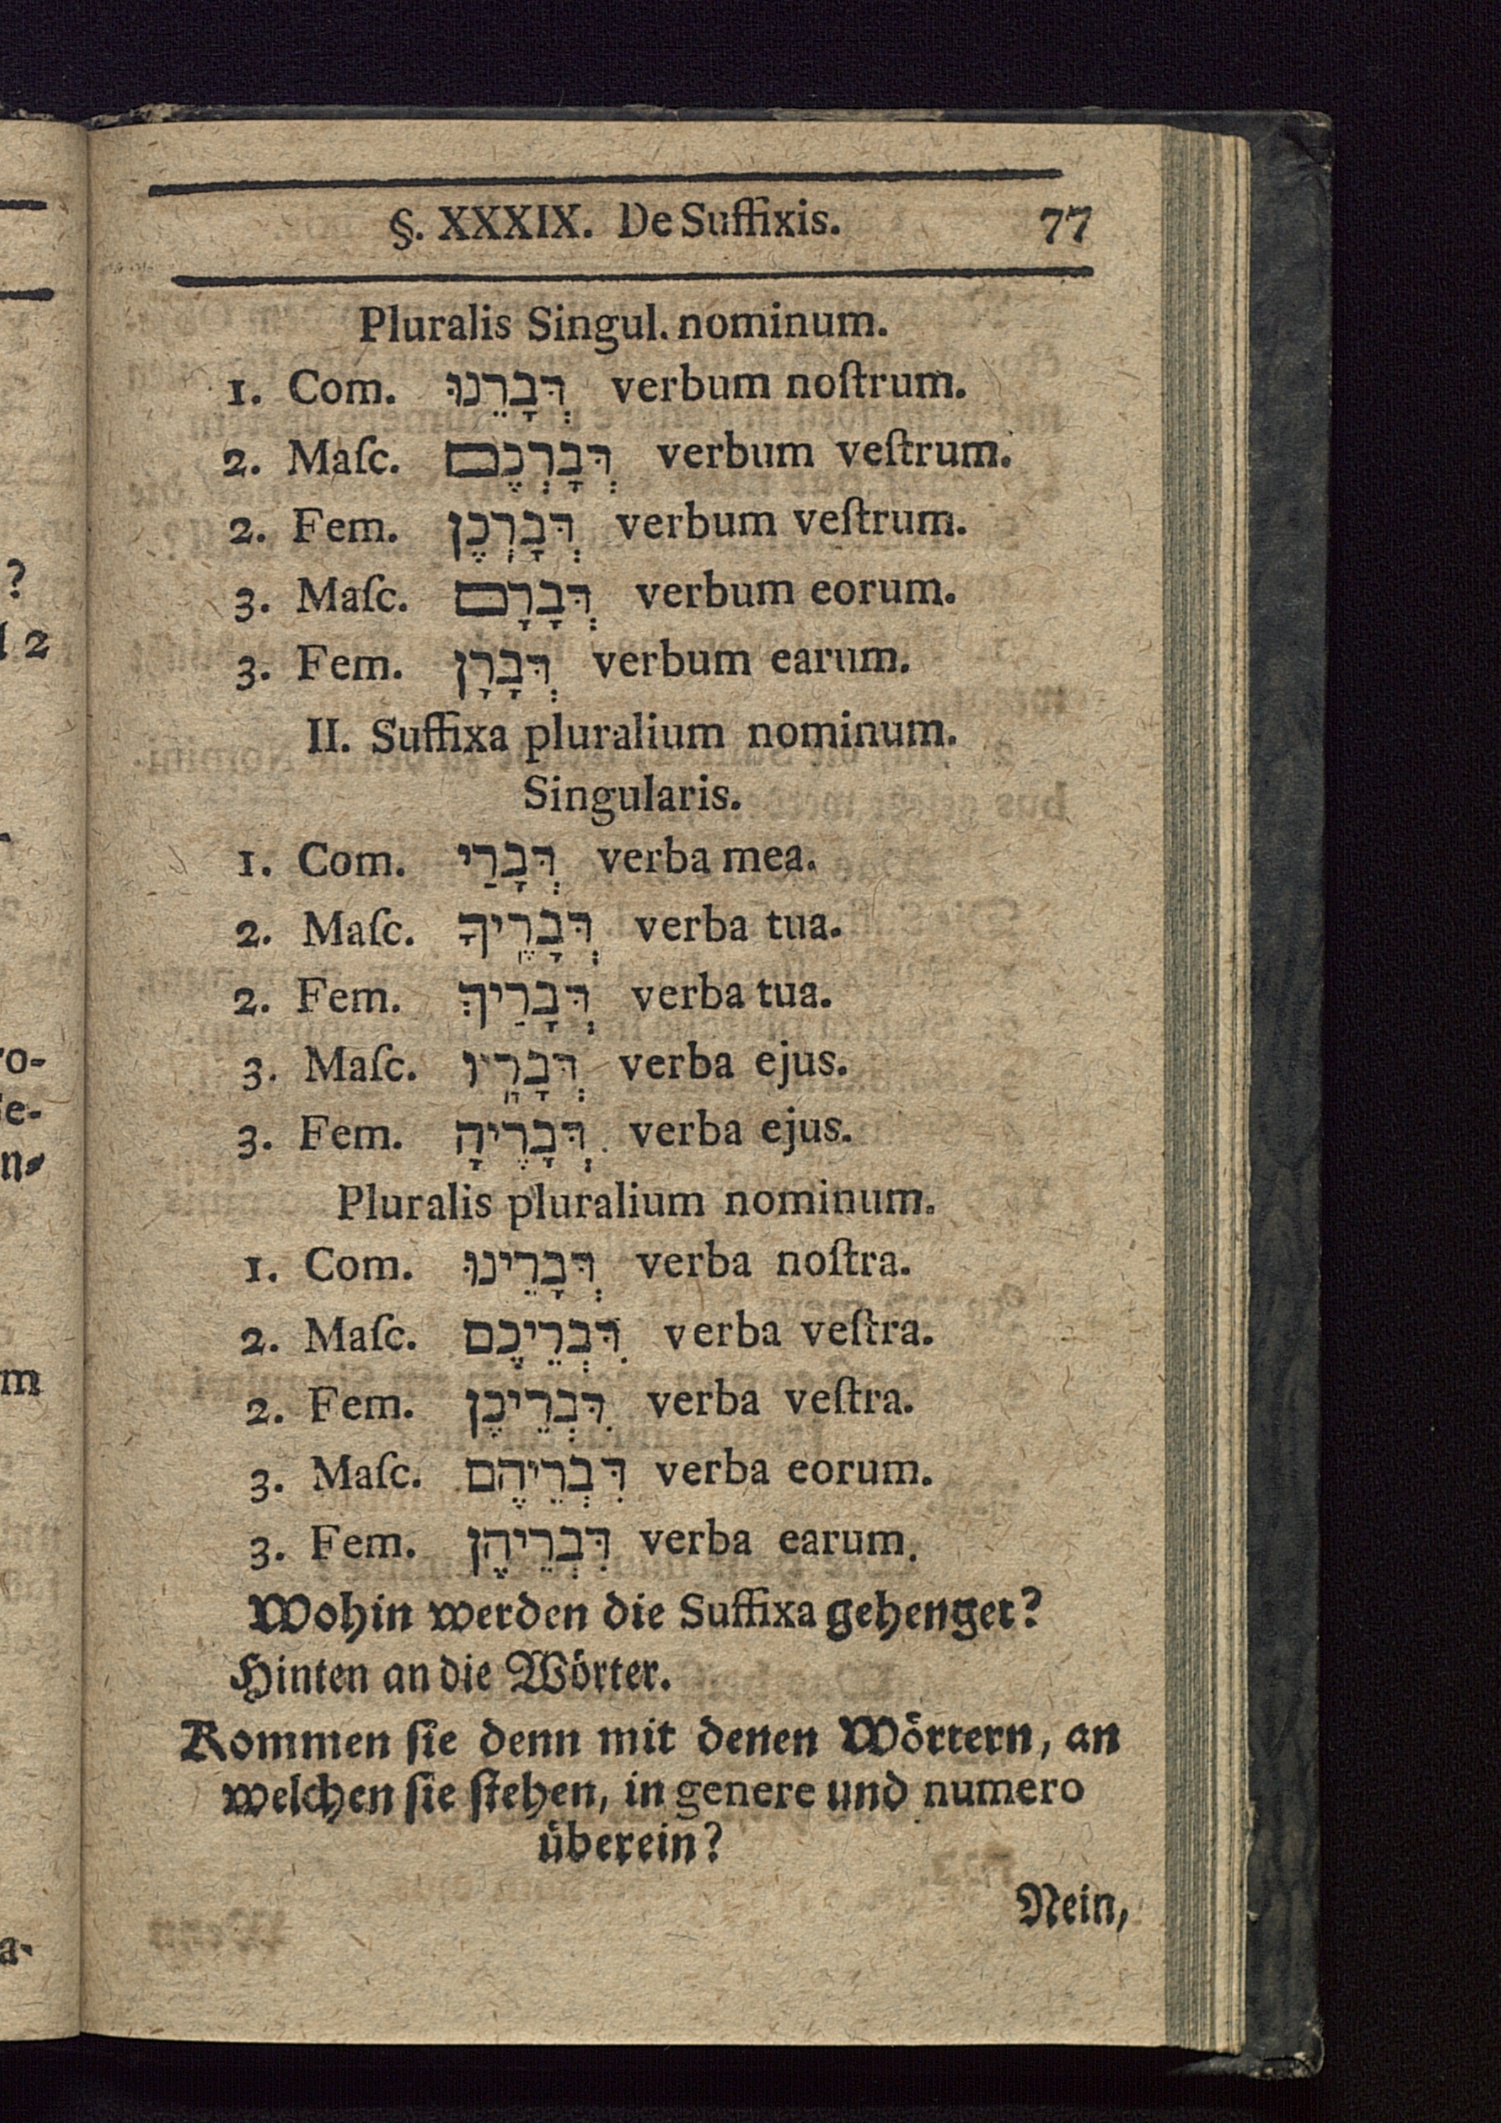 §. XXXIX. De Suffixis. 77
Pluralis Singul. nominum.
1. Com. דְּבָרֵנוּ verbum noſtrum.
2. Maſc. דְּבָרְכֶם verbum veſtrum.
2. Fem. דְּבָרְכֶן verbum veſtrum.
3. Maſc. דְּבָרָם verbum eorum.
3. Fem. דְּבָרָן verbum earum.
II. Suffixa pluralium nominum.
Singularis.
1. Com. דְּבָרַי verba mea.
2. Maſc. דְּבָרֶיךָ verba tua.
2. Fem. דְּבָרַיִךְ verba tua.
3. Maſc. דְּבָרָיו verba ejus.
3. Fem. דְּבָרֶיהָ verba ejus.
Pluralis pluralium nominum.
1. Com. דְּבָרֵינוּ verba noſtra.
2. Maſc. דִּבְרֵיכֶם verba veſtra.
2. Fem. דִּבְרֵיכֶן verba veſtra.
3. Maſc. דִּבְרֵיהֶם verba eorum.
3. Fem. דִּבְרֵיהֶן verba earum.
Wohin werden die Suffixa gehenget?
Hinten an die Wörter.
Kommen ſie denn mit denen Wörtern, an
welchen ſie ſtehen, in genere und numero
überein?
Nein,
?
2
ro-
e-
n-
m
a-